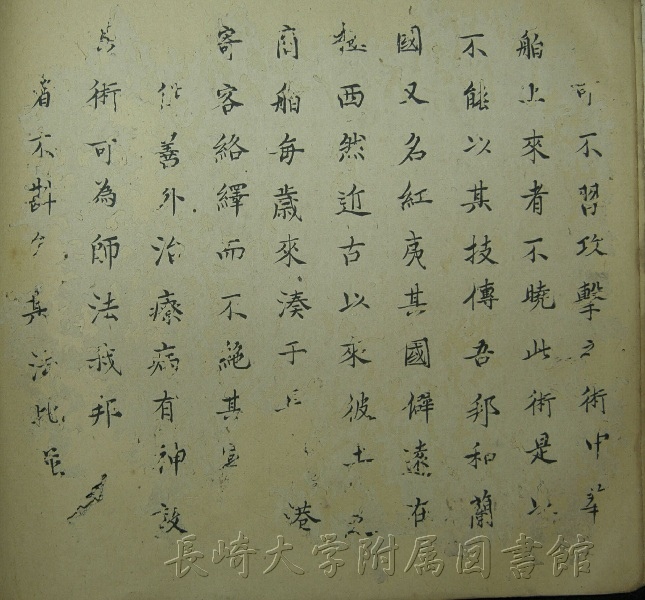 可不習攻撃之術中華
舶上來者不曉此術是以
不能以其技傳吾邦和蘭
國又名紅夷其國僻遠在
極西然近古以來彼土之
商舶毎歳來湊于上 港
寄客絡繹而不絶其
善外治療病有神效
其術可為師法我邦
者不尠
長崎大学附属図書館